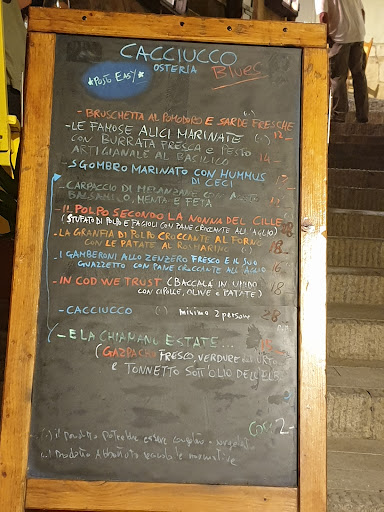 CACCIUCCO
OSTERIA BLUES
*POSTO EASY*
- BRUSCHETTA AL POMODORO E SARDE FRESCHE 12
- LE FAMOSE ALICI MARINATE
CON BURRATA FRESCA E PESTO
ARTIGIANALE AL BASILICO 14
- SGOMBRO MARINATO CON HUMMUS
DI CECI
- CARPACCIO DI MELANZANE CON
BALSAMICO, MENTA E FETA
- IL POLPO SECONDO LA NONNA DEL CILLE
(STUFATO DI POLPO E FAGIOLI CON PANE CROCCANTE ALL'AGLIO)
- LA GRANFIA DI POLPO CROCCANTE AL FORNO
CON LE PATATE AL ROSMARINO 18
- I GAMBERONI ALLO ZENZERO FRESCO E IL SUO
GUAZZETTO CON PANE CROCCANTE ALL'AGLIO 16
- IN COD WE TRUST (BACCALÀ IN UMIDO
CON CIPOLLE, OLIVE E PATATE) 18
- CACCIUCCO minimo 2 persone 28
- E LA CHIAMANO ESTATE...
(GAZPACHO FRESCO, VERDURE
E TONNETTO SOTT'OLIO DELL'ELBA
2-